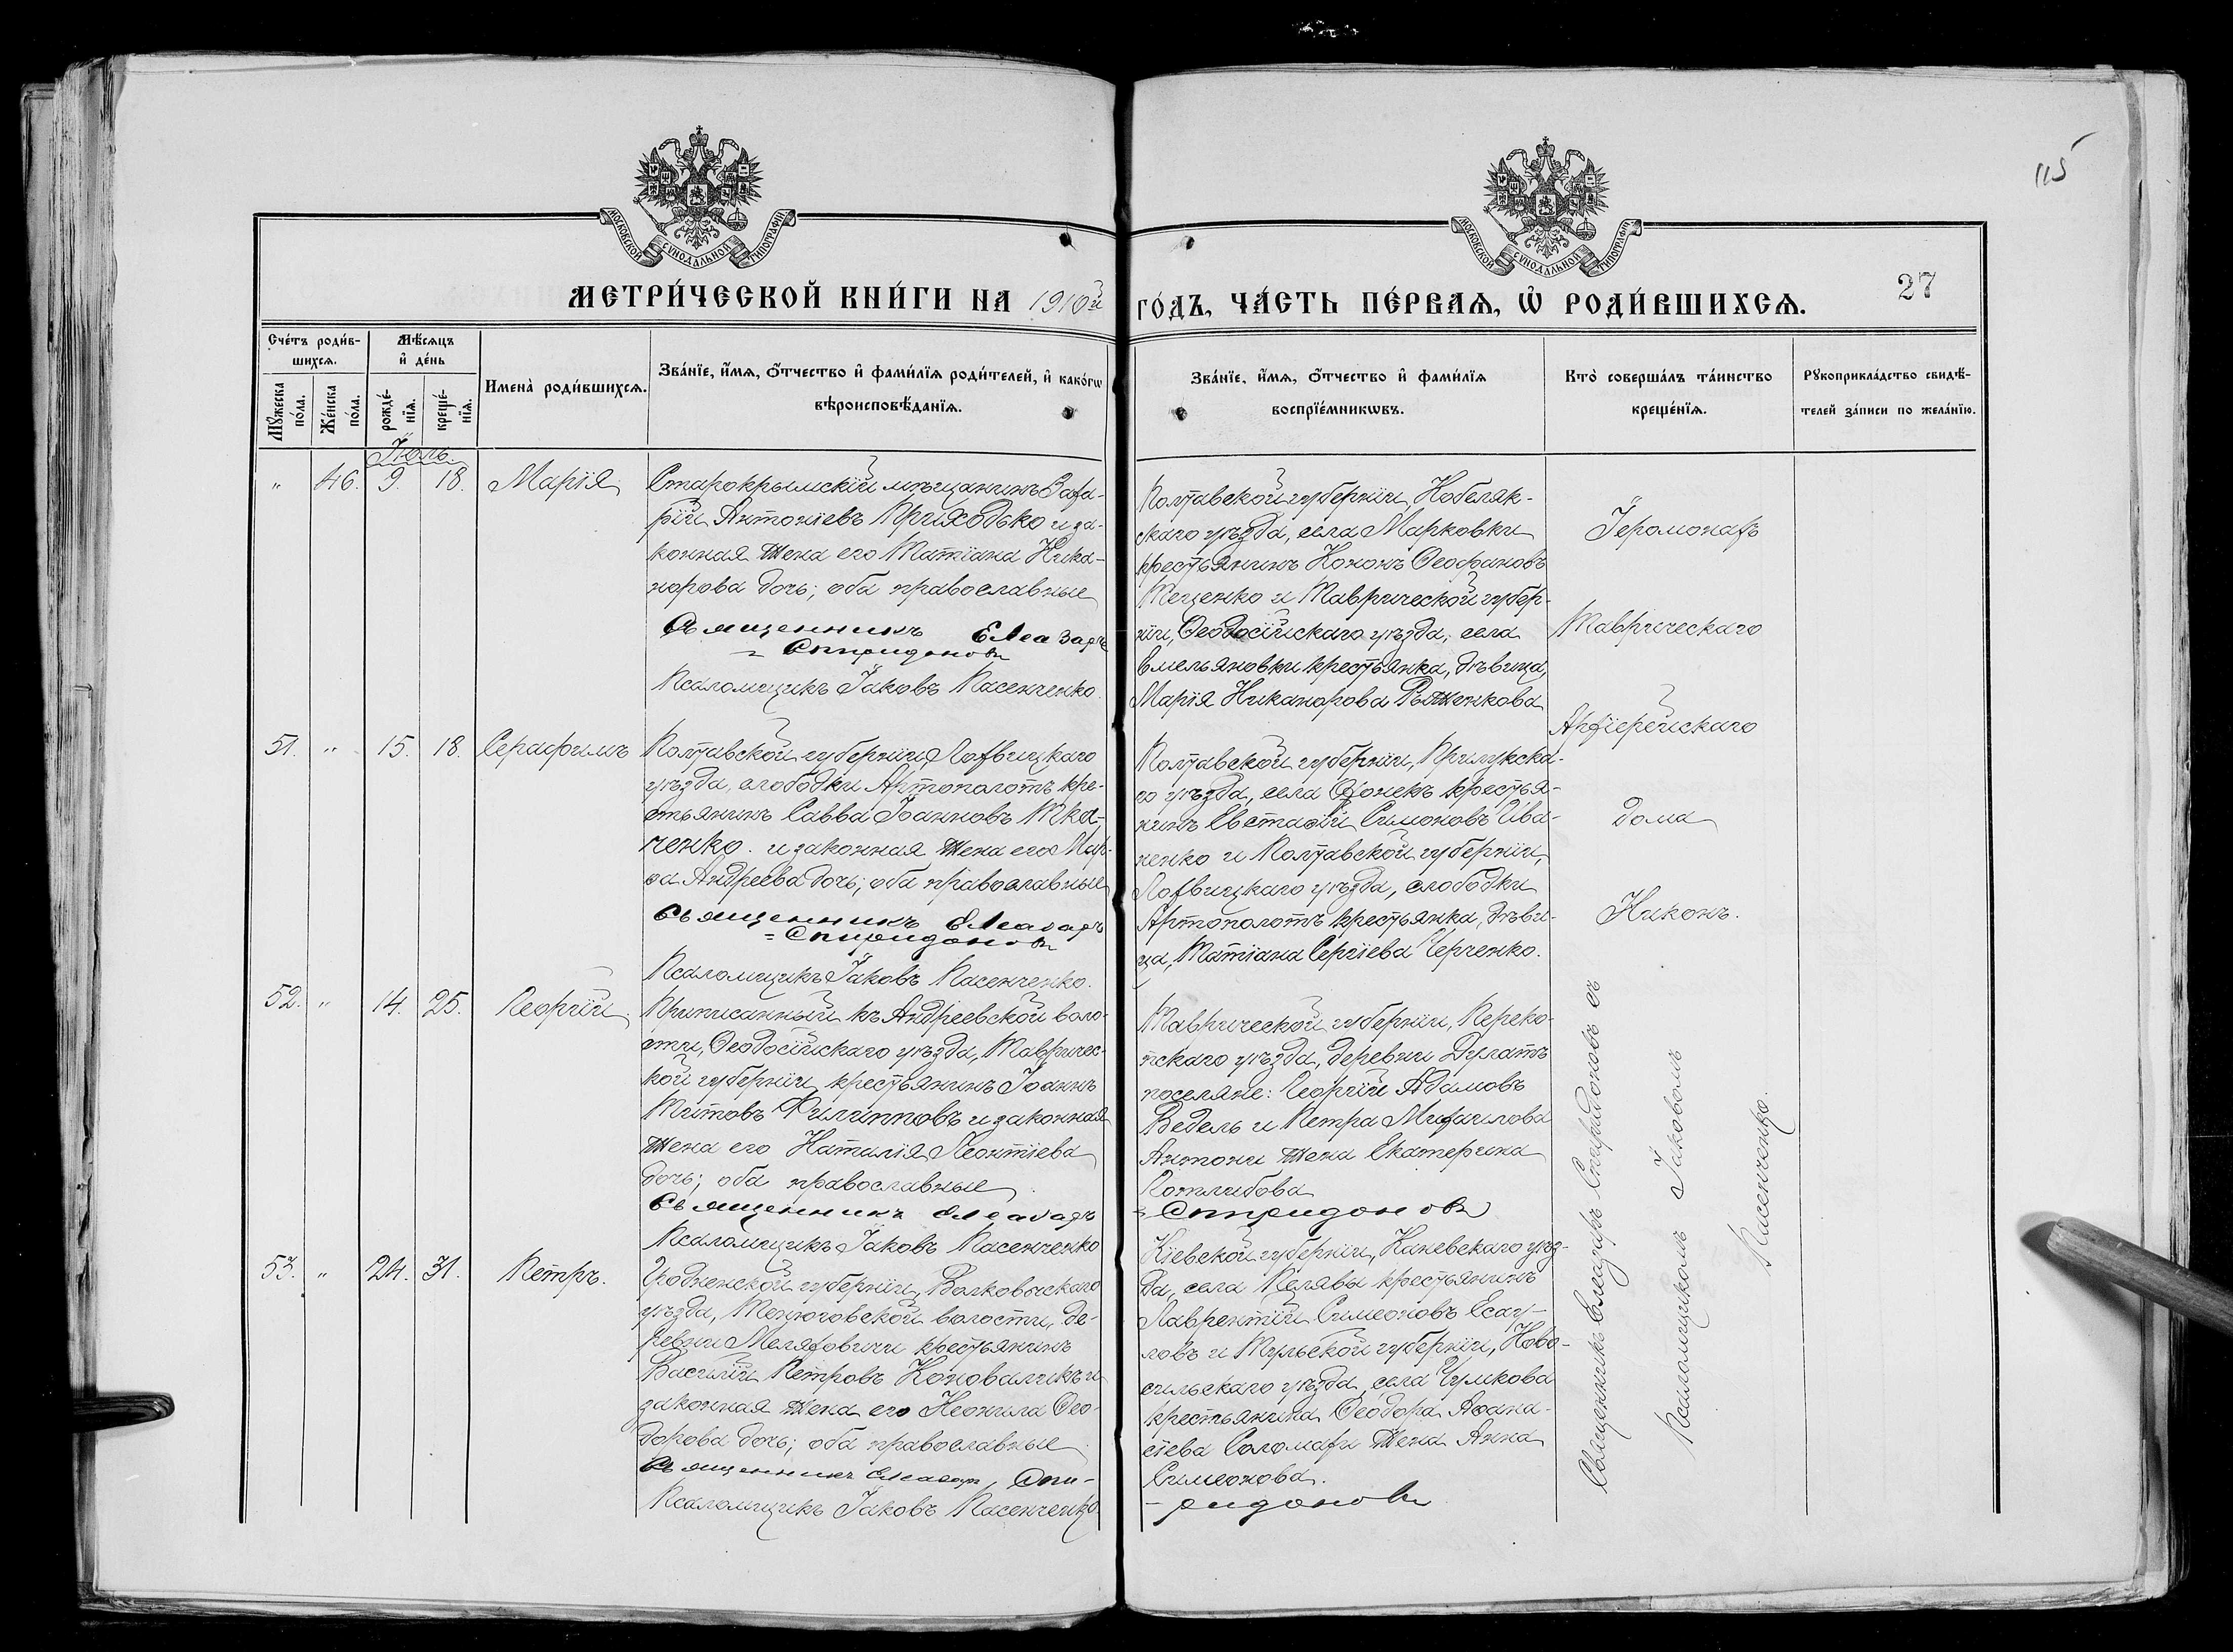 115
27
МОСКОВСКОЙ СѴНОДАЛЬНОЙ ТИПОГРАФІИ
МОСКОВСКОЙ СѴНОДАЛЬНОЙ ТИПОГРАФІИ
МЕТРИ́ЧЕСКОЙ КНИ́ГИ НА 1910й ГО́ДЪ, ЧА́СТЬ ПЕ́РВАЯ, Ѡ҆ РОДИ́ВШИХСЯ.
Сче́тъ роди́в-
шихся.
Му́жеска
по́ла.
Же́нска
по́ла.
Мѣ́сяцъ
и҆ де́нь
рожде́-
нїя.
креще́-
нїя.
Имена̀ роди́вшихся.
Зва́нїе, и҆́мя, ѻ҆́тчество и҆ фами́лїя роди́телей, и҆ како́гѡ
вѣроисповѣ́данїя.
Зва́нїе, и҆́мя, ѻ҆́тчество и҆ фами́лїя
воспрїе́мникѡвъ.
Кто̀ соверша́лъ та́инство
креще́нїя.
Рꙋкоприкла́дство свидѣ́-
телей за́писи по жела́нїю.
Іюль.
" 46. 9. 18. Марія
Старокрымскій мѣщанинъ Заха-
рій Антоніевъ Приходько и за-
конная жена его Татіана Ника-
норова дочь; оба православные
Священникъ Елеазаръ
= Спиридоновъ
Псаломщикъ Іаковъ Пасенченко.
Полтавской губерніи, Кобеляк-
скаго уѣзда, села Марковки
крестьянинъ Кононъ Ѳеофановъ
Тещенко и Таврической губер-
ніи, Ѳеодосійскаго уѣзда, села
Емельяновки крестьянка, дѣвица,
Марія Никанорова Рыженкова
Іеромонахъ
Таврическаго
Архіерейскаго
дома
Никонъ.
51. " 15. 18. Серафимъ
Полтавской губерніи, Лохвицкаго
уѣзда, слободки Артополотъ кре-
стьянинъ Савва Іоанновъ Тка-
ченко и законная жена его Мар-
ѳа Андреева дочь; оба православные
Священникъ Елеазаръ
= Спиридоновъ
Псаломщикъ Іаковъ Пасенченко.
Полтавской губерніи, Прилукска-
го уѣзда, села крестья-
нинъ Евстафій Симоновъ Ива-
ненко и Полтавской губерніи,
Лохвицкаго уѣзда, слободки
Артополотъ крестьянка, дѣви-
ца, Татіана Сергіева Черченко.
52. " 14. 25. Георгій.
Приписанный къ Андреевской воло-
сти, Ѳеодосійскаго уѣзда, Тавричес-
кой губерніи крестьянинъ Іоаннъ
Титовъ Филипповъ и законная
жена его Наталія Леонтіева
дочь; оба православные.
Священникъ Елеазаръ
Псаломщикъ Іаковъ Пасенченко
Таврической губерніи, Переко-
пскаго уѣзда, деревни Дулатъ
поселяне: Георгій Адамовъ
Ведель и Петра Михаилова
Антони жена Екатерина
Готлибова
= Спиридоновъ
53. " 24. 31. Петръ.
Гродненской губерніи, Волковыскаго
уѣзда, волости, де-
ревни Меляховичи крестьянинъ
Василій Петровъ Коновальчикъ и
законная жена его Неонила Ѳео-
дорова дочь; оба православные.
Священникъ Елеазаръ Спи-
Псаломщикъ Іаковъ Пасенченко.
Кіевской губерніи, Каневскаго уѣз-
да, села Пелявы крестьянинъ
Лаврентій Симеоновъ Есау-
ловъ и Тульской губерніи, Ново-
сильскаго уѣзда, села Чулкова
крестьянина Ѳеодора Аѳана-
сіева Соломахи жена Анна
Симеонова.
-ридоновъ
Священникъ Елеазаръ Спиридоновъ съ
Псаломщикомъ Іаковомъ
Пасенченко.